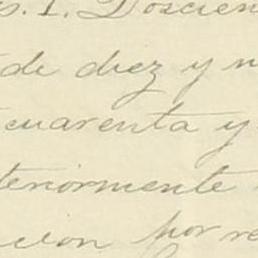 s. 1. Doscien
de diez y n
cuarenta y
teriormente
cion por re